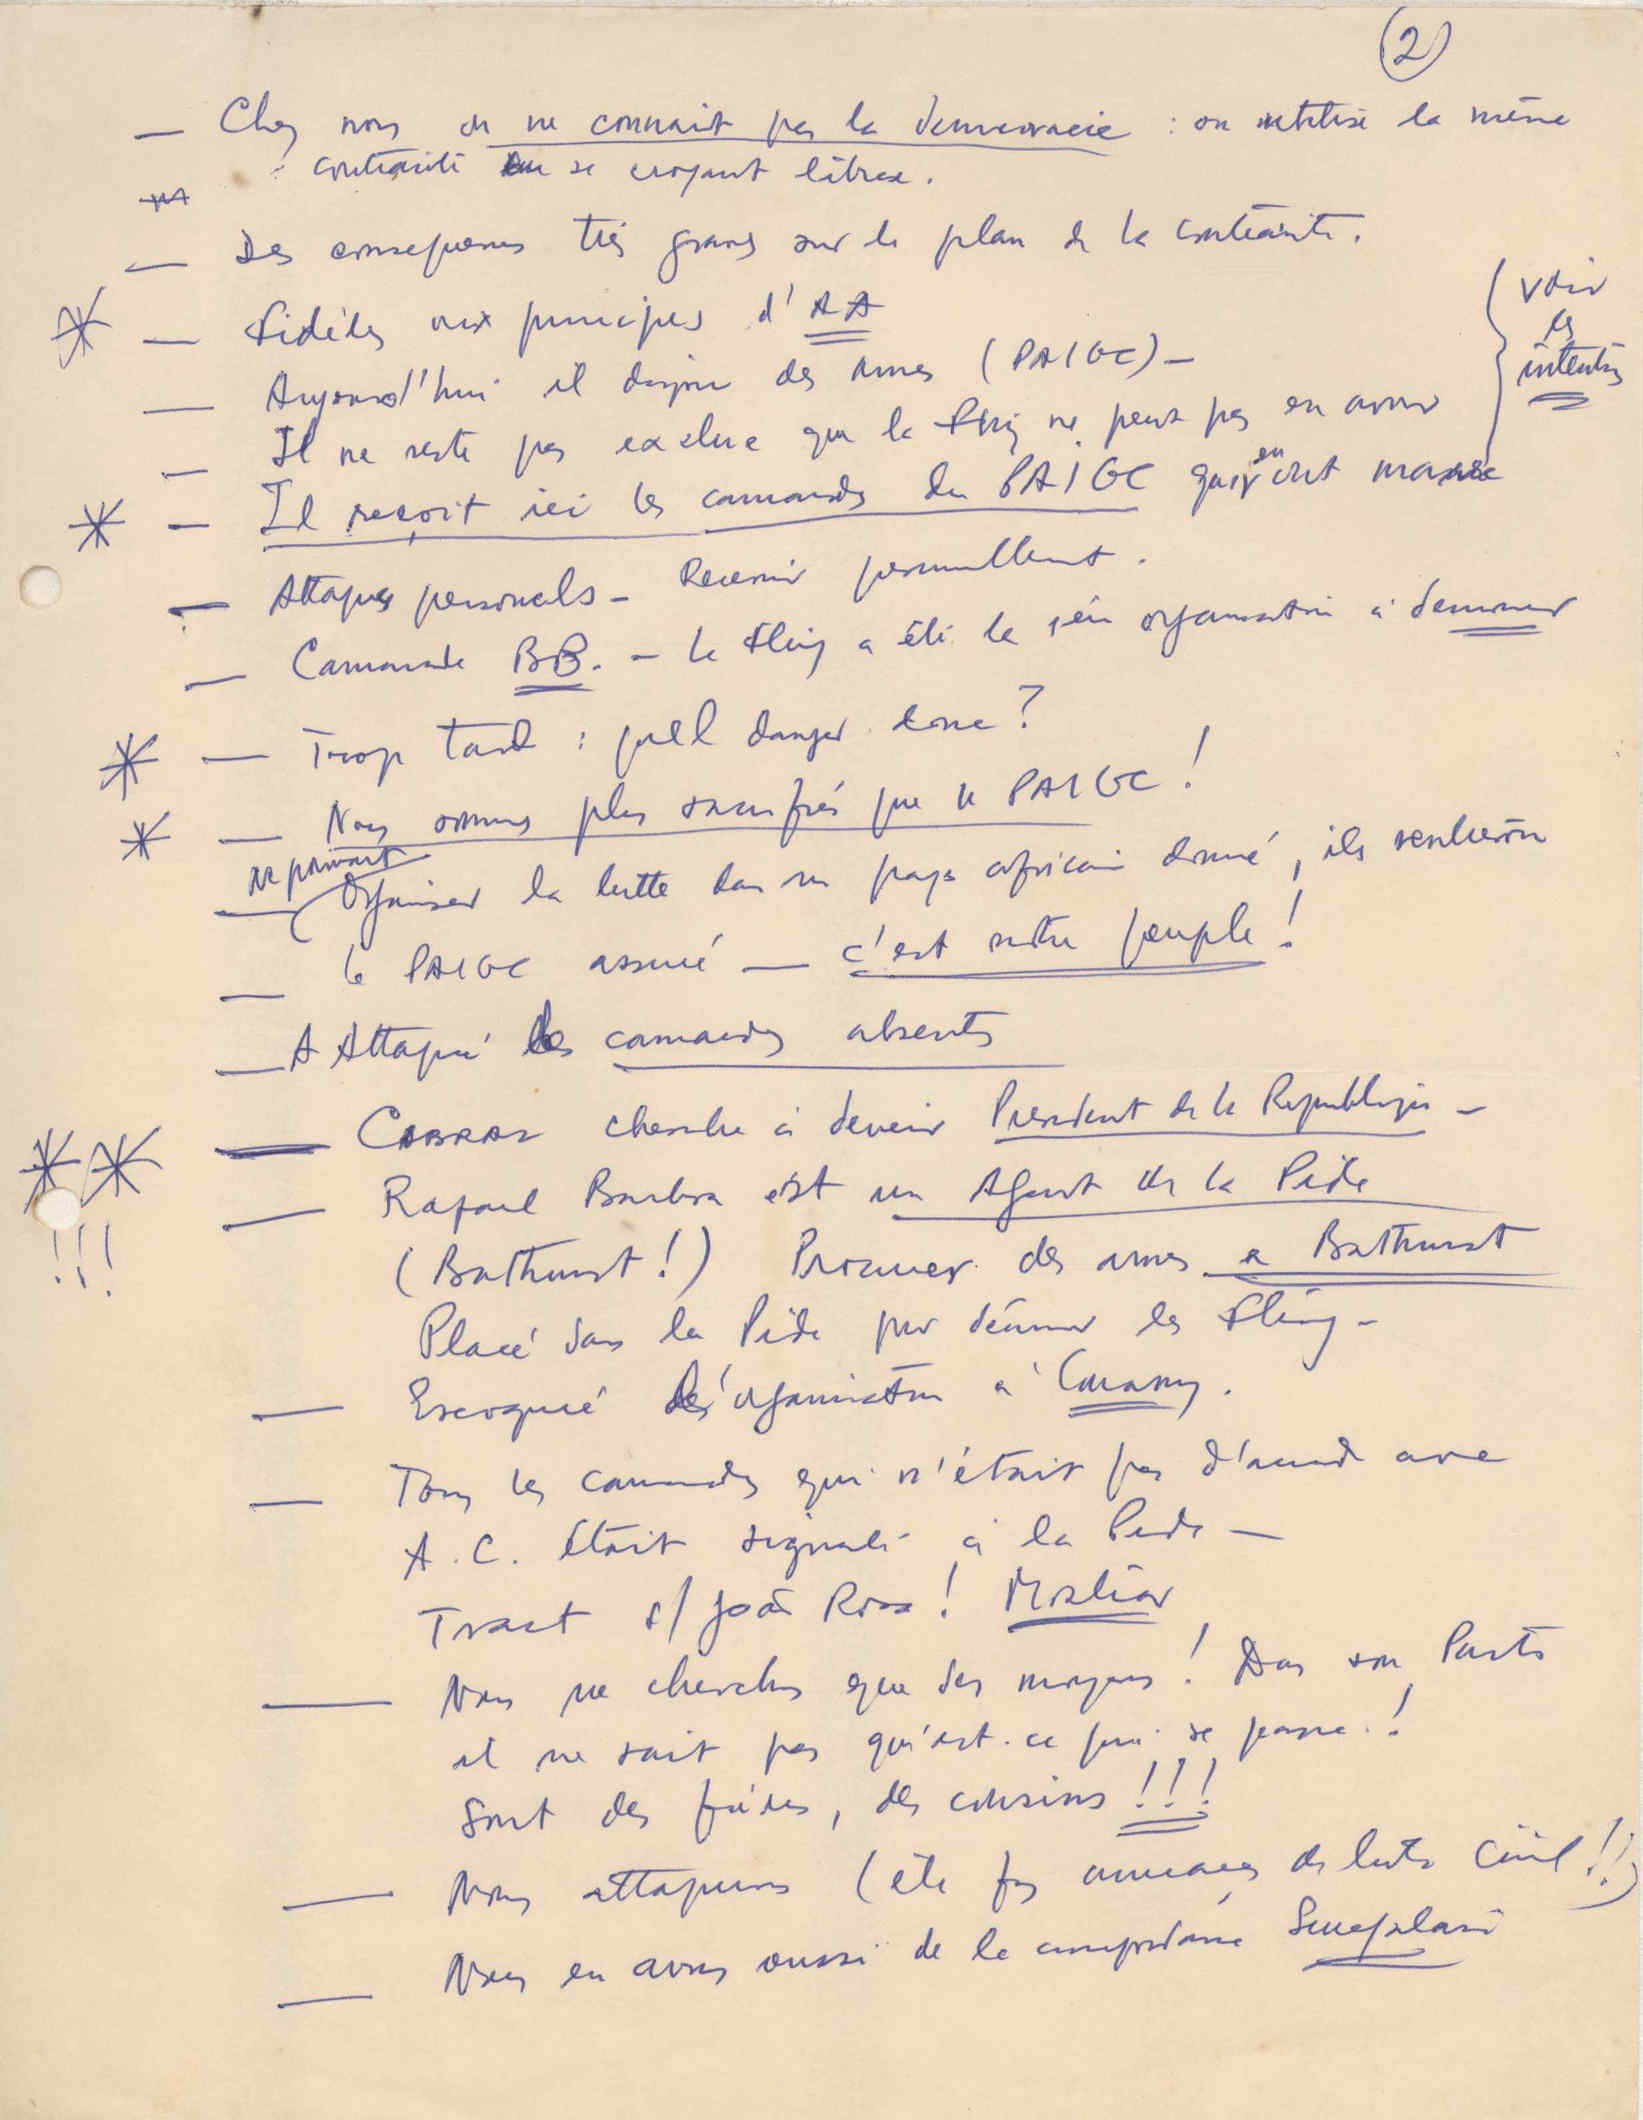 2
— Chez nous on ne connait pas la democracie : on utilise la même
contrainte en se croyant libres.
— Des consequences très graves sur le plan de la contrainte.
— Fidèles aux principes d'AA
— Aujourd'hui il dispose des armes (PAIGC) —
voir les intentions
— Il ne reste pas exclue que le Fling ne peut pas en avoir
— Il reçoit ici les camarades du PAIGC qui en ont marre
— Attaques personnels — Revenir
— Camarade BB. — Le Fling a été la 1ère organisation à
— Trop tard : quel danger donc?
— Nous sommes plus sacrifiés que le PAIGC!
ne pouvant
— Organiser la lutte dans un pays africain donné, ils
— le PAIGC assuré — c'est notre peuple!
— A Attaqué les camarades absents
— CABRAL cherche à devenir President de la Republique —
— Rafael Barbosa est un Agent de la Pide
!!!
(Bathurst!) Procurer des armes a Bathurst
Placé dans la Pide par les Fling —
— Escroqué l'organisation à Conakry.
— Tous les camarades qui n'était pas d'accord avec
A.C. était signalé à la Pide —
Tract s/ João Rosa!
— Nous ne cherchons que des moyens! Dans son Parti
il ne sait pas qu'est-ce qui se passe!
Sont des frères, des cousins!!!
— Nous attaquerons (de lutte civil!!)
— Nous en avons aussi de la Senegalais